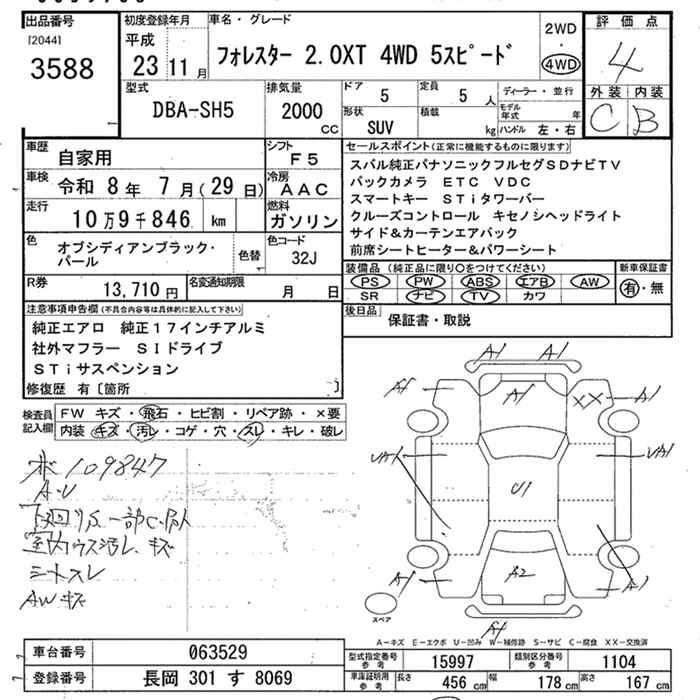 出品番号 初度登録年月 車名・グレード 評価点
[2044] 平成 2WD
3588 23 11月 フォレスター 2.0XT 4WD 5スピード ・ 4WD 4
型式 排気量 ドア 定員 ディーラー・並行 外装 内装
DBA-SH5 2000 cc 5 5人 モデル年式 年 C B
形状 積載
SUV kg ハンドル 左・右
車歴 自家用 シフト F5 セールスポイント(正常に機能するものに限ります)
車検 令和 8年 7月(29日) 冷房 AAC スバル純正パナソニックフルセグSDナビTV
バックカメラ ETC VDC
走行 10万9千846 km 燃料 ガソリン スマートキー STiタワーバー
クルーズコントロール キセノンヘッドライト
色 オブシディアンブラック・パール 色替 色コード 32J サイド&カーテンエアバック
前席シートヒーター&パワーシート
R券 13,710円 名変通知期限 月 日 装備品(純正品に限り○をつけてください) 新車保証書
PS PW ABS エアB AW 有・無
SR ナビ TV カワ
注意事項申告欄(不具合内容等は具体的に記入して下さい) 後日品 保証書・取説
純正エアロ 純正17インチアルミ
社外マフラー SIドライブ
STiサスペンション
修復歴 有〔箇所 〕
検査員記入欄 FW キズ・飛石・ヒビ割・リペア跡・×要
内装 キズ・汚レ・コゲ・穴・スレ・キレ・破レ
109847
A・U
室内ウス汚レ、キズ
シートスレ
AWキズ
A1 A1
A1 A1 XX A1
UA1 U1 UA1
A1 A2 A1
A1
スペア
A-キズ E-エクボ U-凹み W-補修跡 S-サビ C-腐食 XX-交換済
車台番号 063529 型式指定番号 参考 15997 類別区分番号 参考 1104
登録番号 長岡 301 す 8069 車庫証明用 参考 長さ 456 cm 幅 178 cm 高さ 167 cm